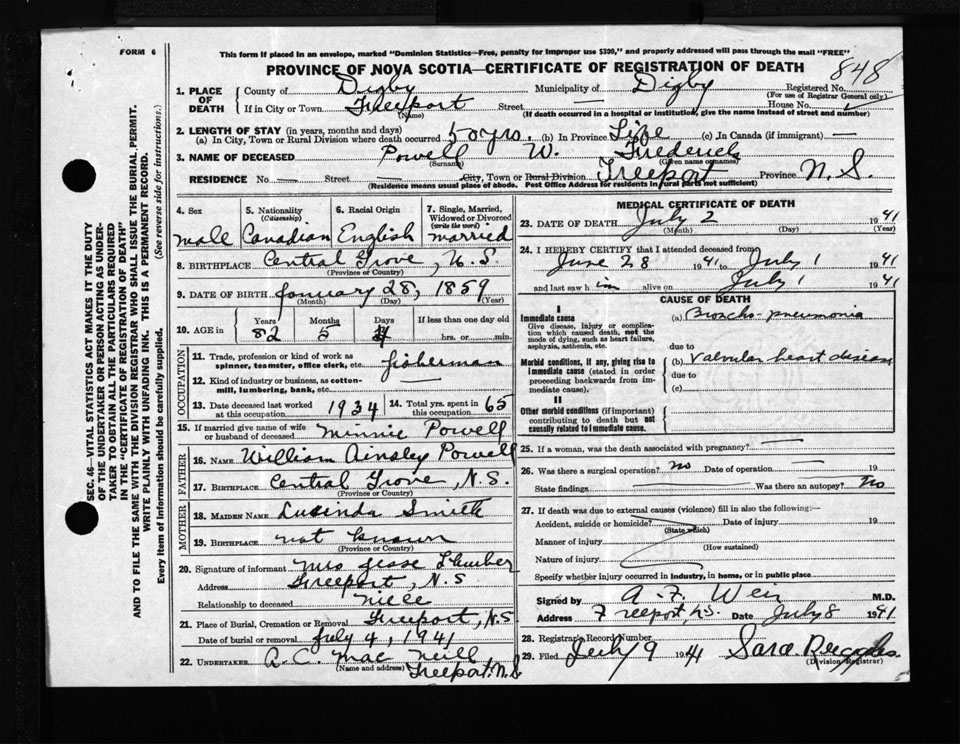 FORM 6
This form if placed in an envelope, marked "Dominion Statistics—Free, penalty for improper use $300," and properly addressed will pass through the mail "FREE"
PROVINCE OF NOVA SCOTIA—CERTIFICATE OF REGISTRATION OF DEATH
848
1. PLACE OF DEATH { County of Digby Municipality of Digby Registered No.
(For use of Registrar General only)
If in City or Town Freeport Street House No.
(Name) (If death occurred in a hospital or institution, give the name instead of street and number)
2. LENGTH OF STAY (in years, months and days)
(a) In City, Town or Rural Division where death occurred 50 yrs. (b) In Province Life (c) In Canada (if immigrant) —
3. NAME OF DECEASED Powell W. Frederick
(Surname) (Given name or names)
RESIDENCE No. Street City, Town or Rural Division Freeport Province N.S.
(Residence means usual place of abode. Post Office Address for residents in rural parts not sufficient)
4. Sex 5. Nationality (Citizenship) 6. Racial Origin 7. Single, Married, Widowed or Divorced (write the word)
male Canadian English married
8. BIRTHPLACE Central Grove, N.S.
(Province or Country)
9. DATE OF BIRTH January 28, 1859
(Month) (Day) (Year)
10. AGE in { Years Months Days If less than one day old
82 5 4 hrs. or min.
OCCUPATION
11. Trade, profession or kind of work as spinner, teamster, office clerk, etc. fisherman
12. Kind of industry or business, as cotton-mill, lumbering, bank, etc. —
13. Date deceased last worked at this occupation 1934 14. Total yrs. spent in this occupation 65
15. If married give name of wife or husband of deceased Minnie Powell
FATHER
16. NAME William Ainsley Powell
17. BIRTHPLACE Central Grove, N.S.
(Province or Country)
MOTHER
18. MAIDEN NAME Lucinda Smith
19. BIRTHPLACE not known
(Province or Country)
20. Signature of informant Mrs Jesse Thurber
Address Freeport, N.S
Relationship to deceased niece
21. Place of Burial, Cremation or Removal Freeport, N.S
Date of burial or removal July 4, 1941
22. UNDERTAKER A.C. MacNeill
(Name and address) Freeport. N.S
MEDICAL CERTIFICATE OF DEATH
23. DATE OF DEATH July 2 1941
(Month) (Day) (Year)
24. I HEREBY CERTIFY that I attended deceased from
June 28 1941 to July 1 1941
and last saw him alive on July 1 1941
CAUSE OF DEATH
I
Immediate cause (a) Broncho-pneumonia
Give disease, injury or complication which caused death, not the mode of dying, such as heart failure, asphyxia, asthenia, etc.
due to
Morbid conditions, if any, giving rise to immediate cause (stated in order preceeding backwards from immediate cause).
(b) Valvular heart disease
due to
(c)
II
Other morbid conditions (if important) contributing to death but not causally related to immediate cause.
25. If a woman, was the death associated with pregnancy? —
26. Was there a surgical operation? no Date of operation — 19
State findings — Was there an autopsy? No
27. If death was due to external causes (violence) fill in also the following:—
Accident, suicide or homicide? Date of injury 19
(State which)
Manner of injury
(How sustained)
Nature of injury
Specify whether injury occurred in industry, in home, or in public place
Signed by A. F. Weir M.D.
Address Freeport, N.S. Date July 8 1941
28. Registrar's Record Number
29. Filed July 9 1941 Sara Ruggles
(Division Registrar)
SEC. 46—VITAL STATISTICS ACT MAKES IT THE DUTY
OF THE UNDERTAKER OR PERSON ACTING AS UNDER-
TAKER TO OBTAIN ALL THE PARTICULARS REQUIRED
IN THE "CERTIFICATE OF REGISTRATION OF DEATH"
AND TO FILE THE SAME WITH THE DIVISION REGISTRAR WHO SHALL ISSUE THE BURIAL PERMIT.
WRITE PLAINLY WITH UNFADING INK. THIS IS A PERMANENT RECORD.
Every item of information should be carefully supplied. (See reverse side for instructions.)